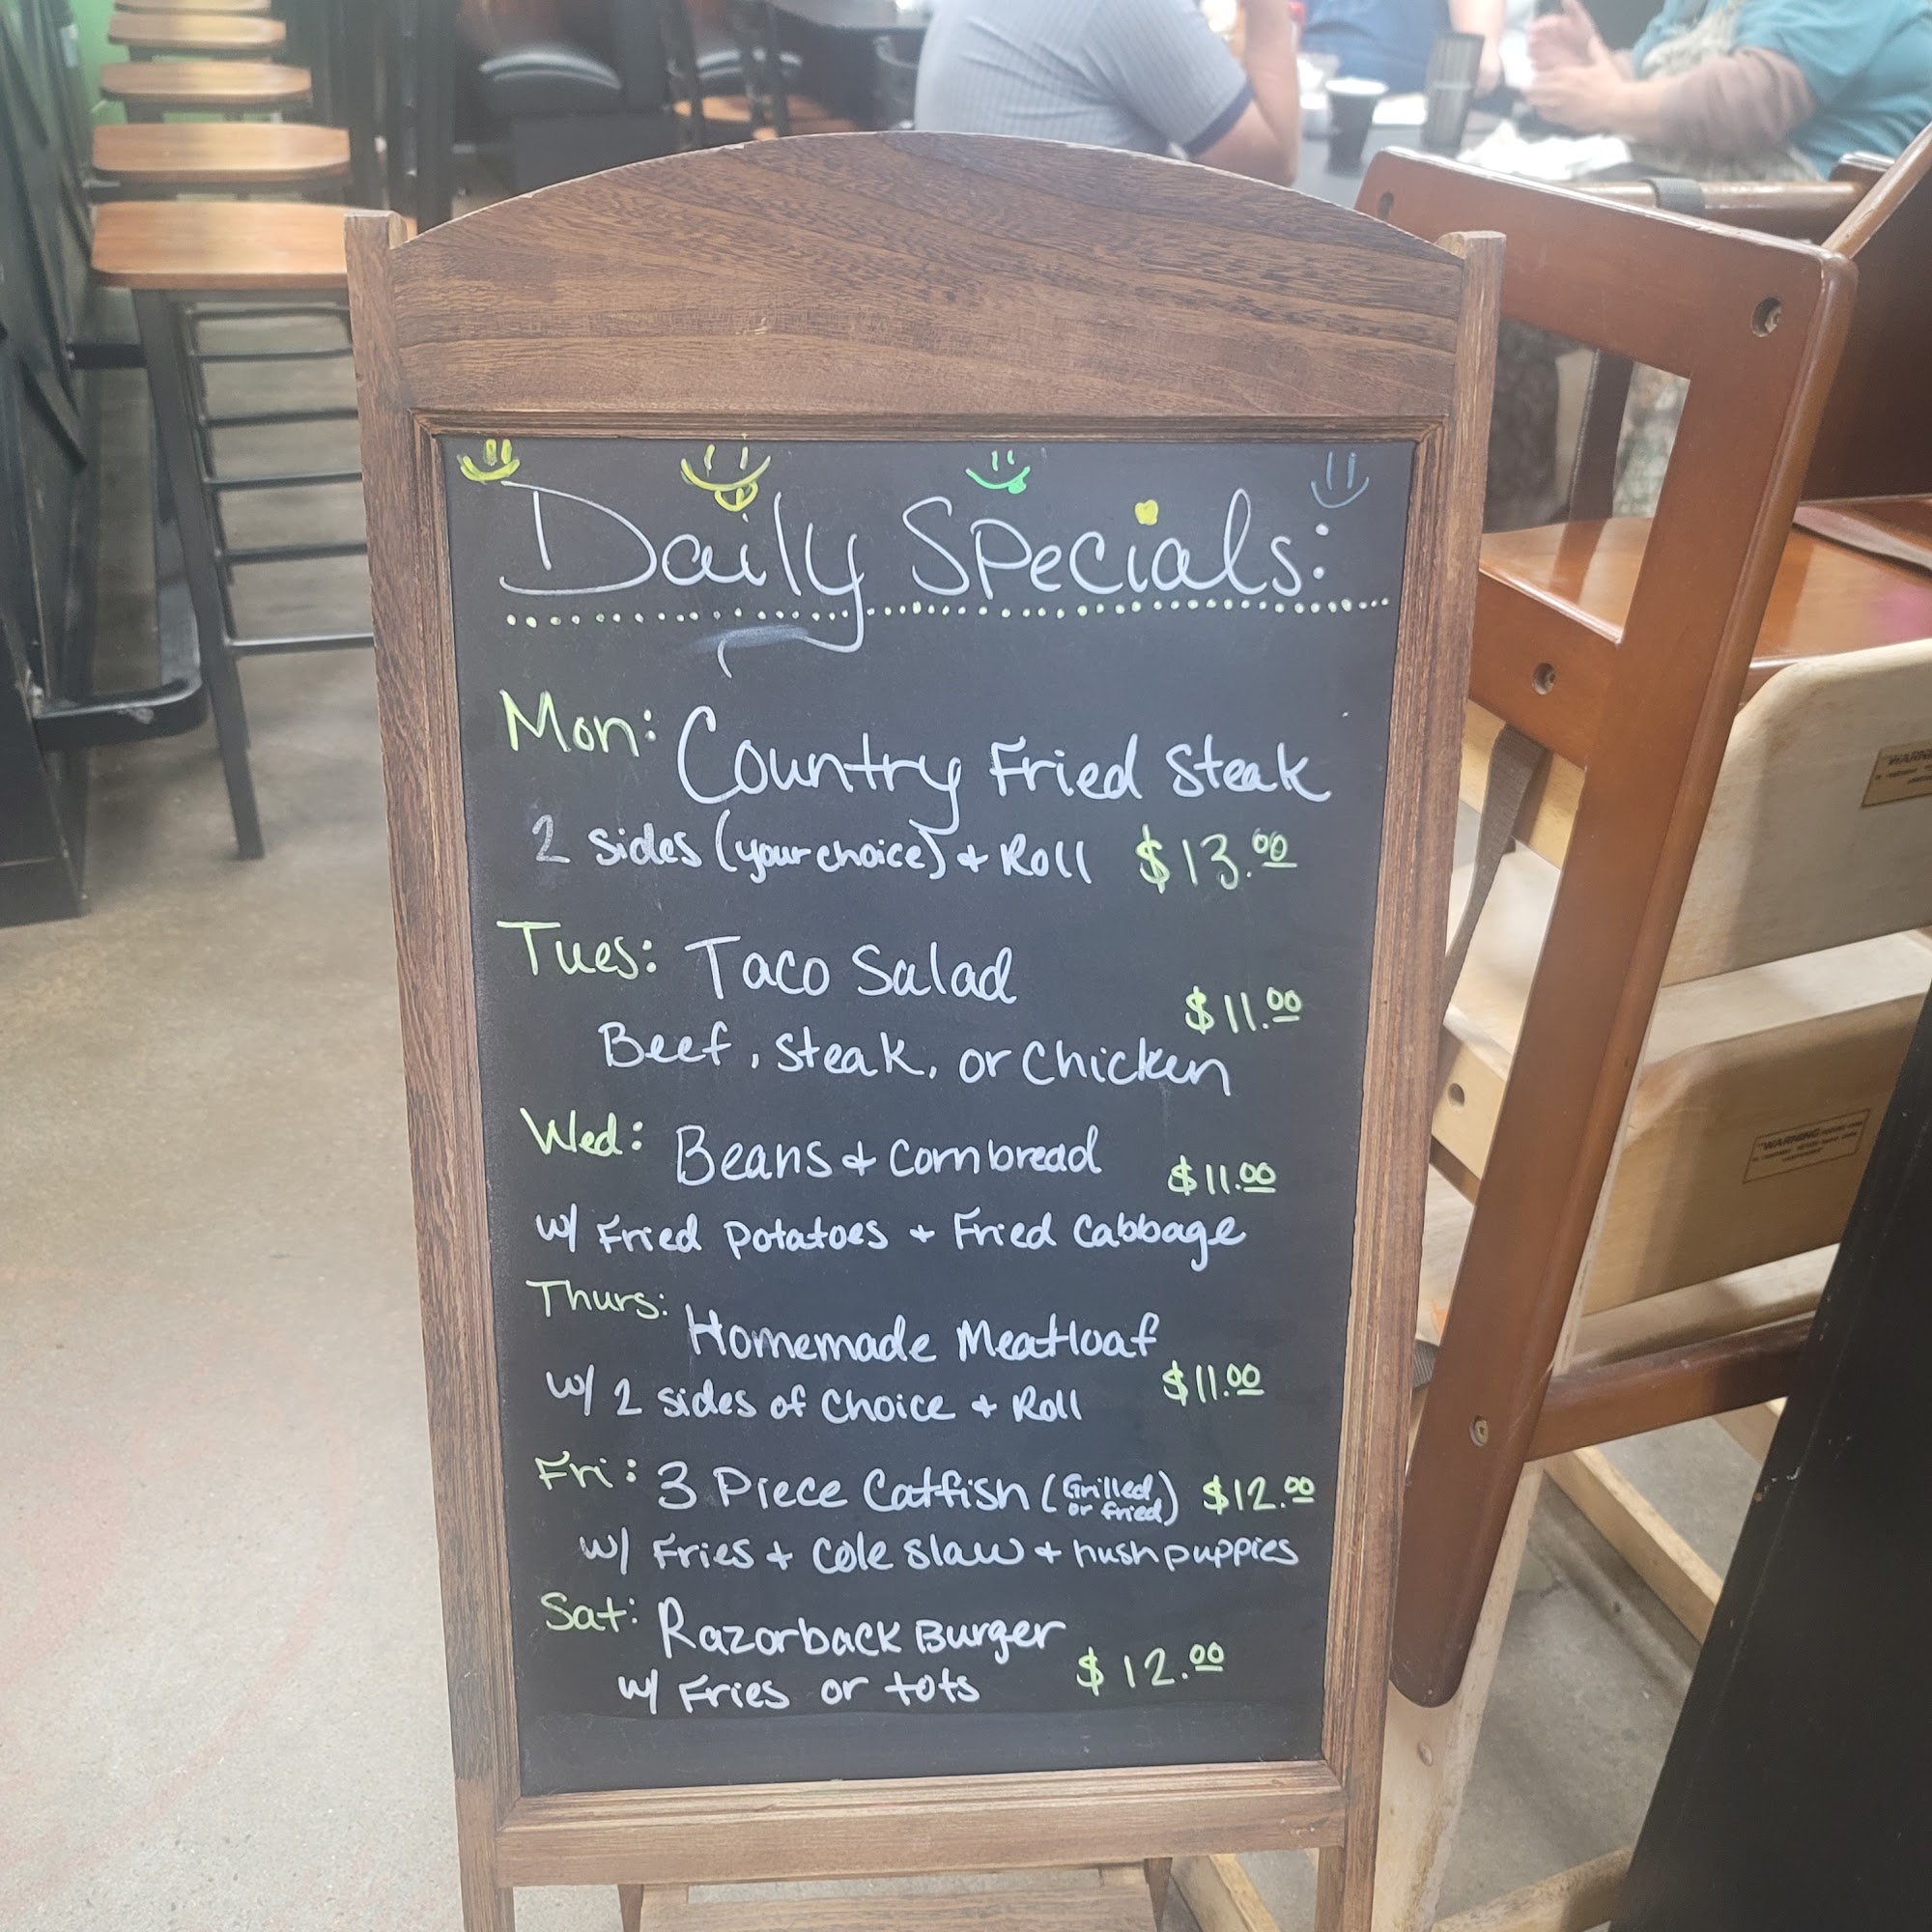 Daily Specials:
Mon: Country Fried Steak
2 sides (your choice) + Roll $13.00
Tues: Taco Salad
$11.00
Beef, Steak, or Chicken
Wed: Beans + Cornbread $11.00
w/ Fried Potatoes + Fried Cabbage
Thurs: Homemade Meatloaf
w/ 2 sides of Choice + Roll $11.00
Fri: 3 Piece Catfish (Grilled or Fried) $12.00
w/ Fries + Cole Slaw + hushpuppies
Sat: Razorback Burger
w/ Fries or tots $12.00
"WARNING